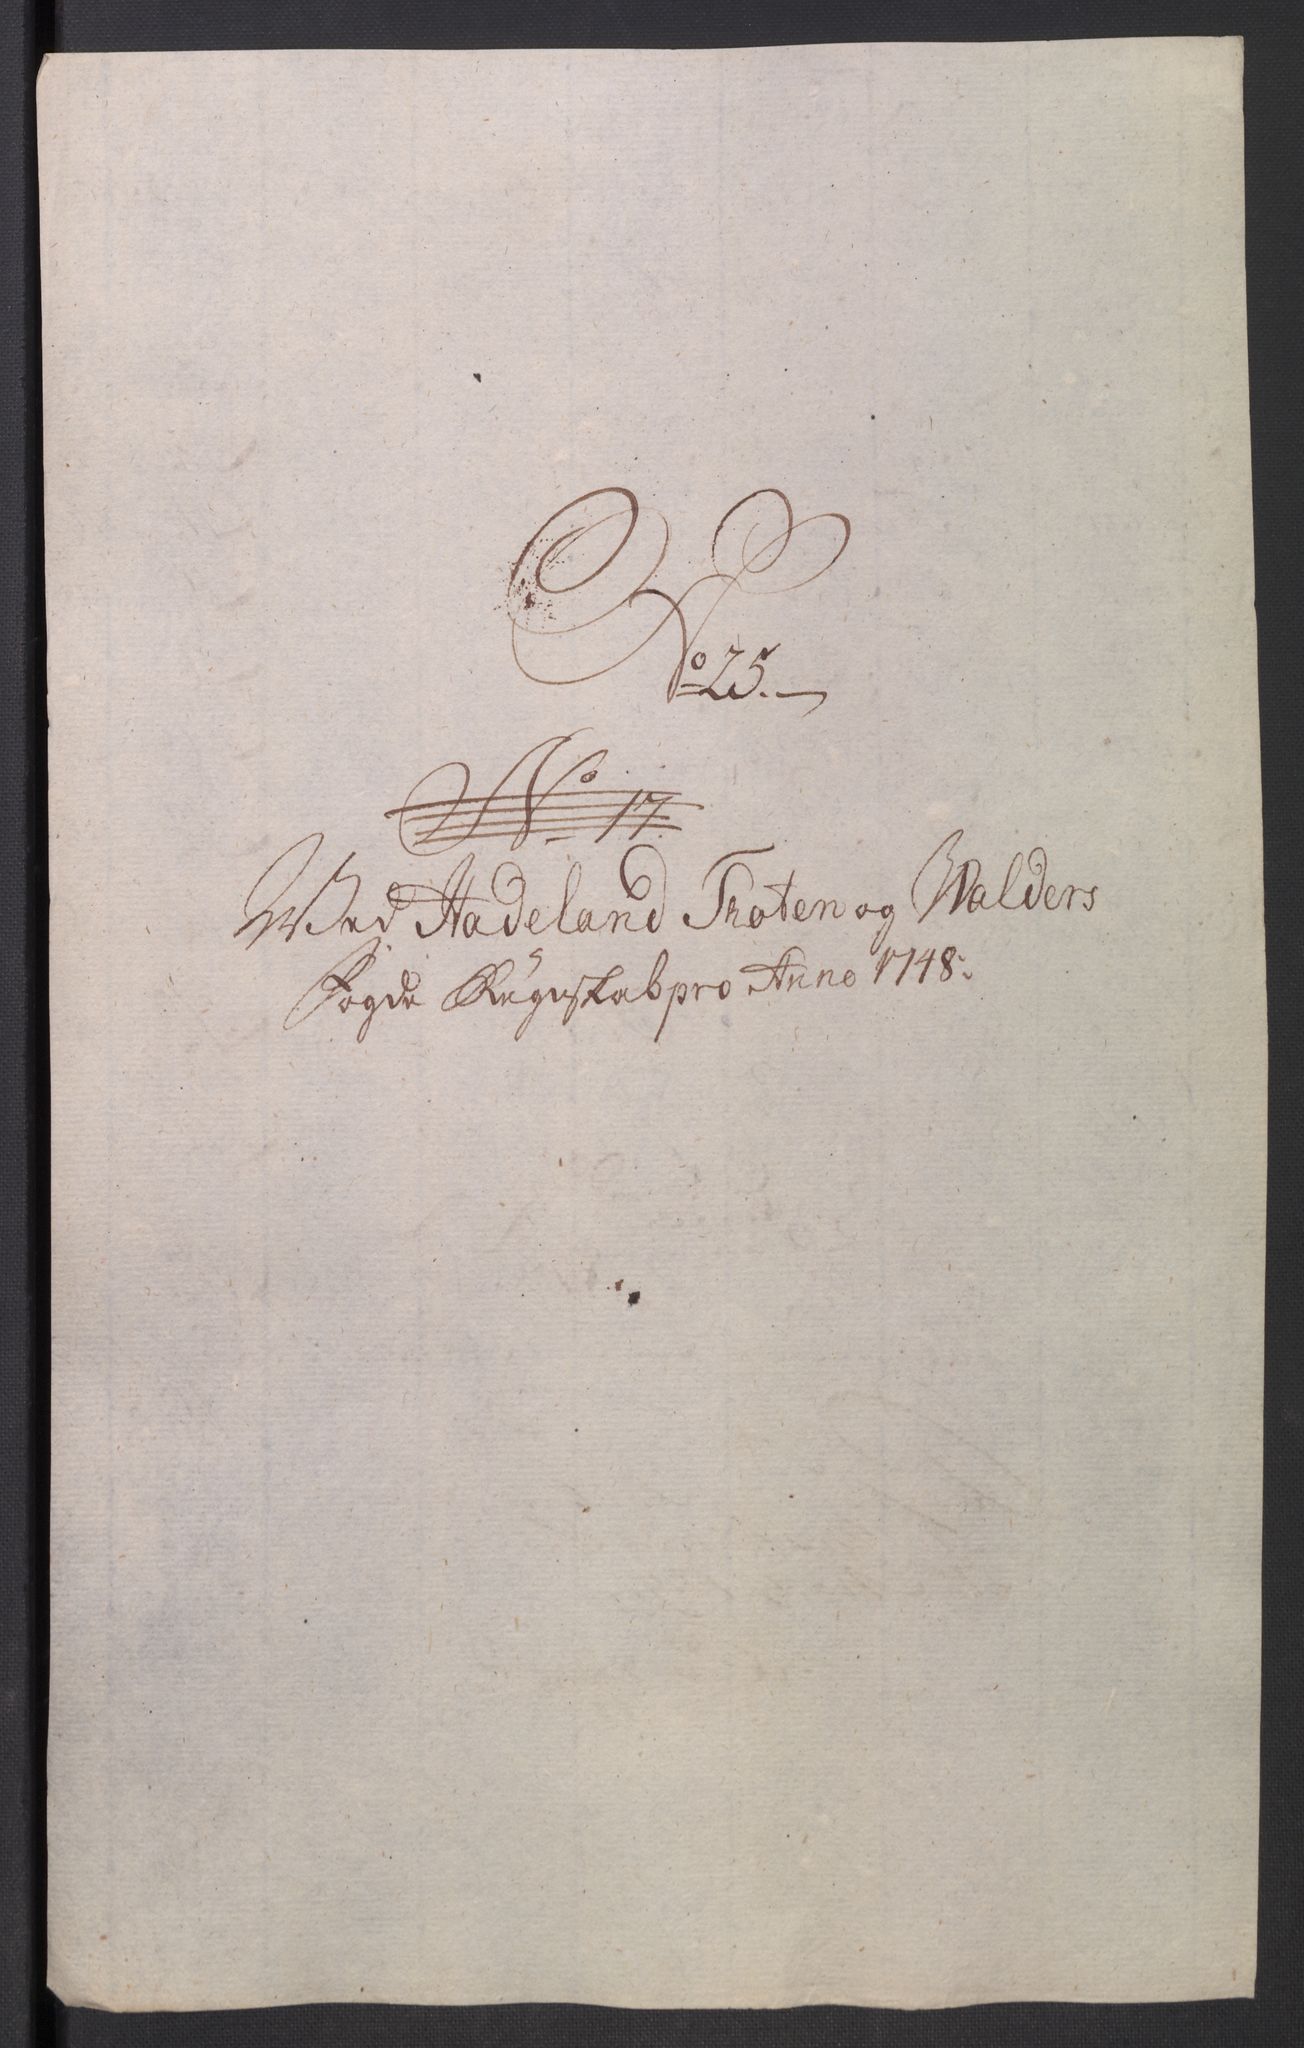 No 25.
No 17
Wed Hadeland Toten og Walders
Fogde Regnskab pro Anno 1748.